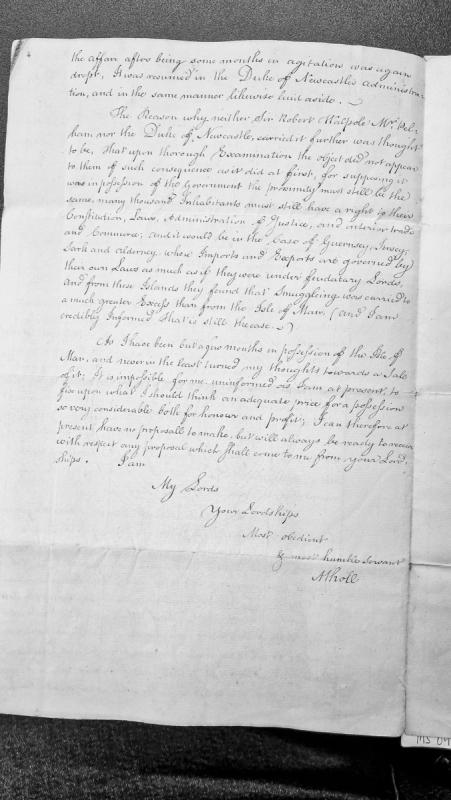 the affair after being some months in agitation was again
dropt, It was resumed in the Duke of Newcastle's Administra-
tion, and in the same manner likewise laid aside.
The Reason why neither Sir Robert Walpole Mr. Pel-
ham nor the Duke of Newcastle, carried it further was thought
to be, that upon thorough Examination the object did not appear
to them of such consequence as it did at first, for supposing it
was in possession of the Government the proximity must still be the
same, many thousand Inhabitants must still have a right to their
Constitution, Laws, Administration of Justice, and interior trade
and Commerce; and it would be in the case of Guernsey, Jersey,
Sark and Alderney, whose Imports and Exports are governed by
their own Laws as much as if they were under feudatary Lords,
and from these Islands they found that Smuggling was carried to
a much greater Excess than from the Isle of Man, (and I am
credibly Informed that is still the case.)
As I have been but a few months in possession of the Isle of
Man, and never in the least turned my thoughts towards a Sale
of it; It is impossible for me, uninformed as I am at present, to
fix upon what I should think an adequate price for a possession
so very considerable both for honour and profit; I can therefore at
present have no proposall to make, but will always be ready to receive
with respect any proposal which shall come to me from your Lord-
ships. I am
My Lords
Your Lordships
Most obedient
& most humble Servant
Atholl
MS 09